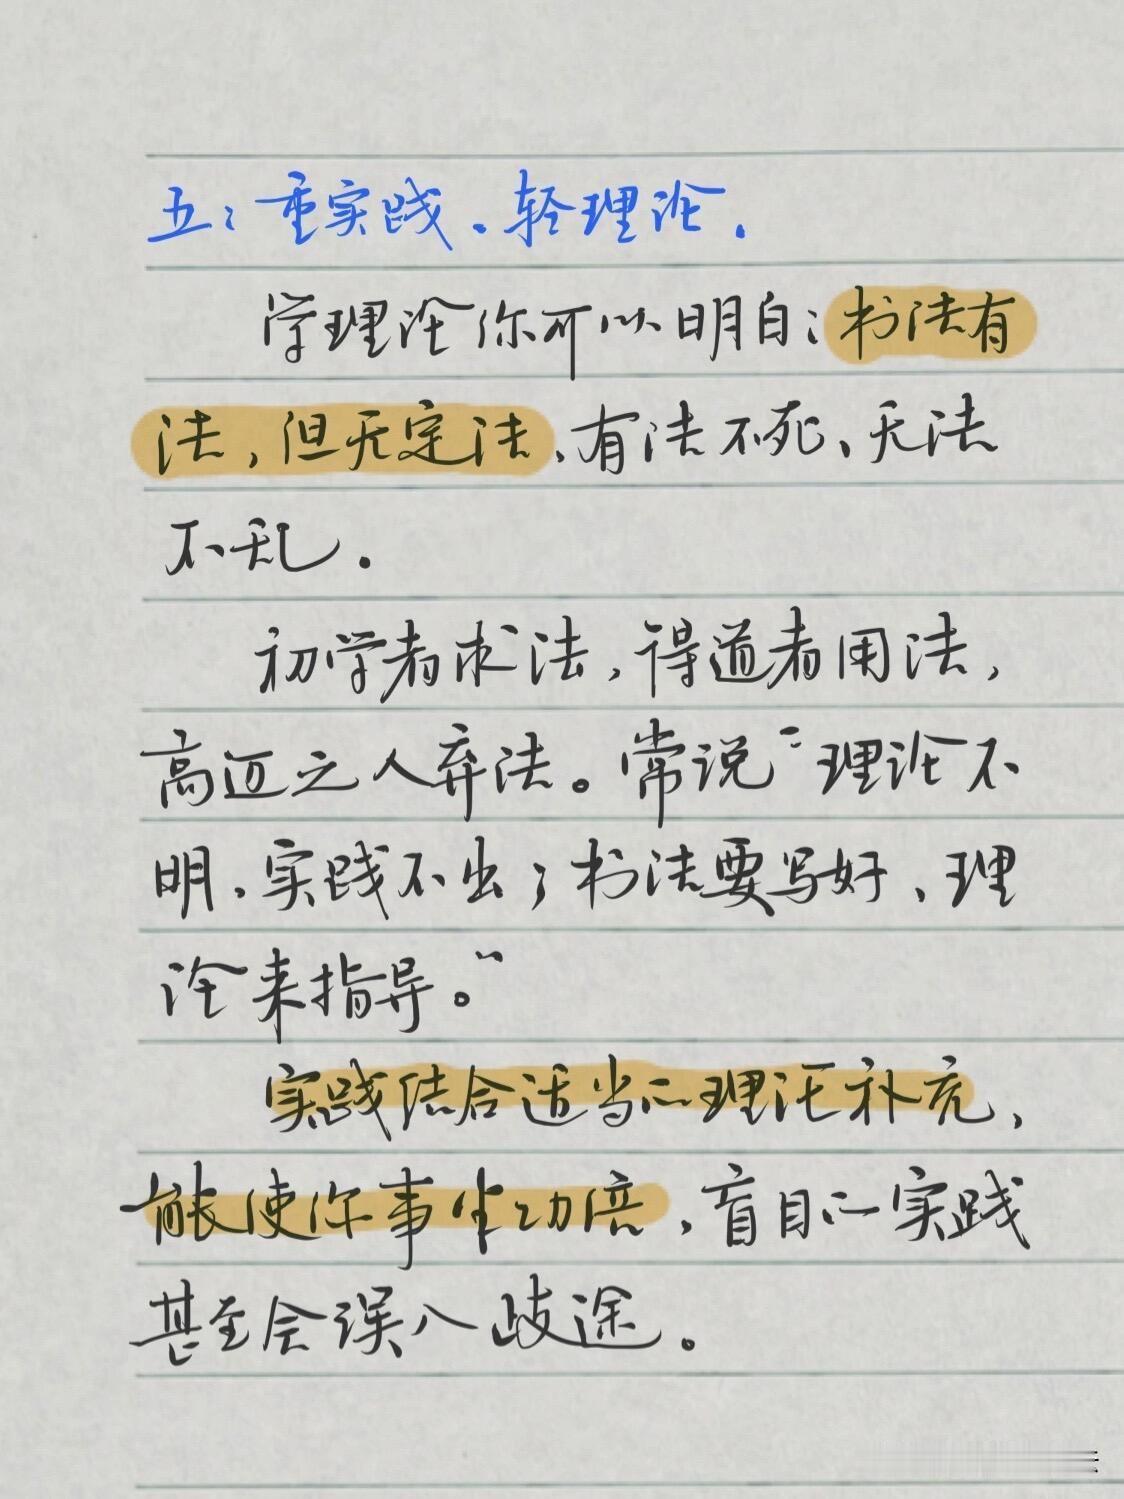 五：重实践、轻理论.
学理论你可以明白：书法有
法，但无定法、有法不死、无法
不乱.
初学者求法，得道者用法，
高迈之人弃法。常说“理论不
明、实践不出；书法要写好、理
论来指导。”
实践结合适当的理论补充，
能使你事半功倍，盲目的实践
甚至会误入歧途。